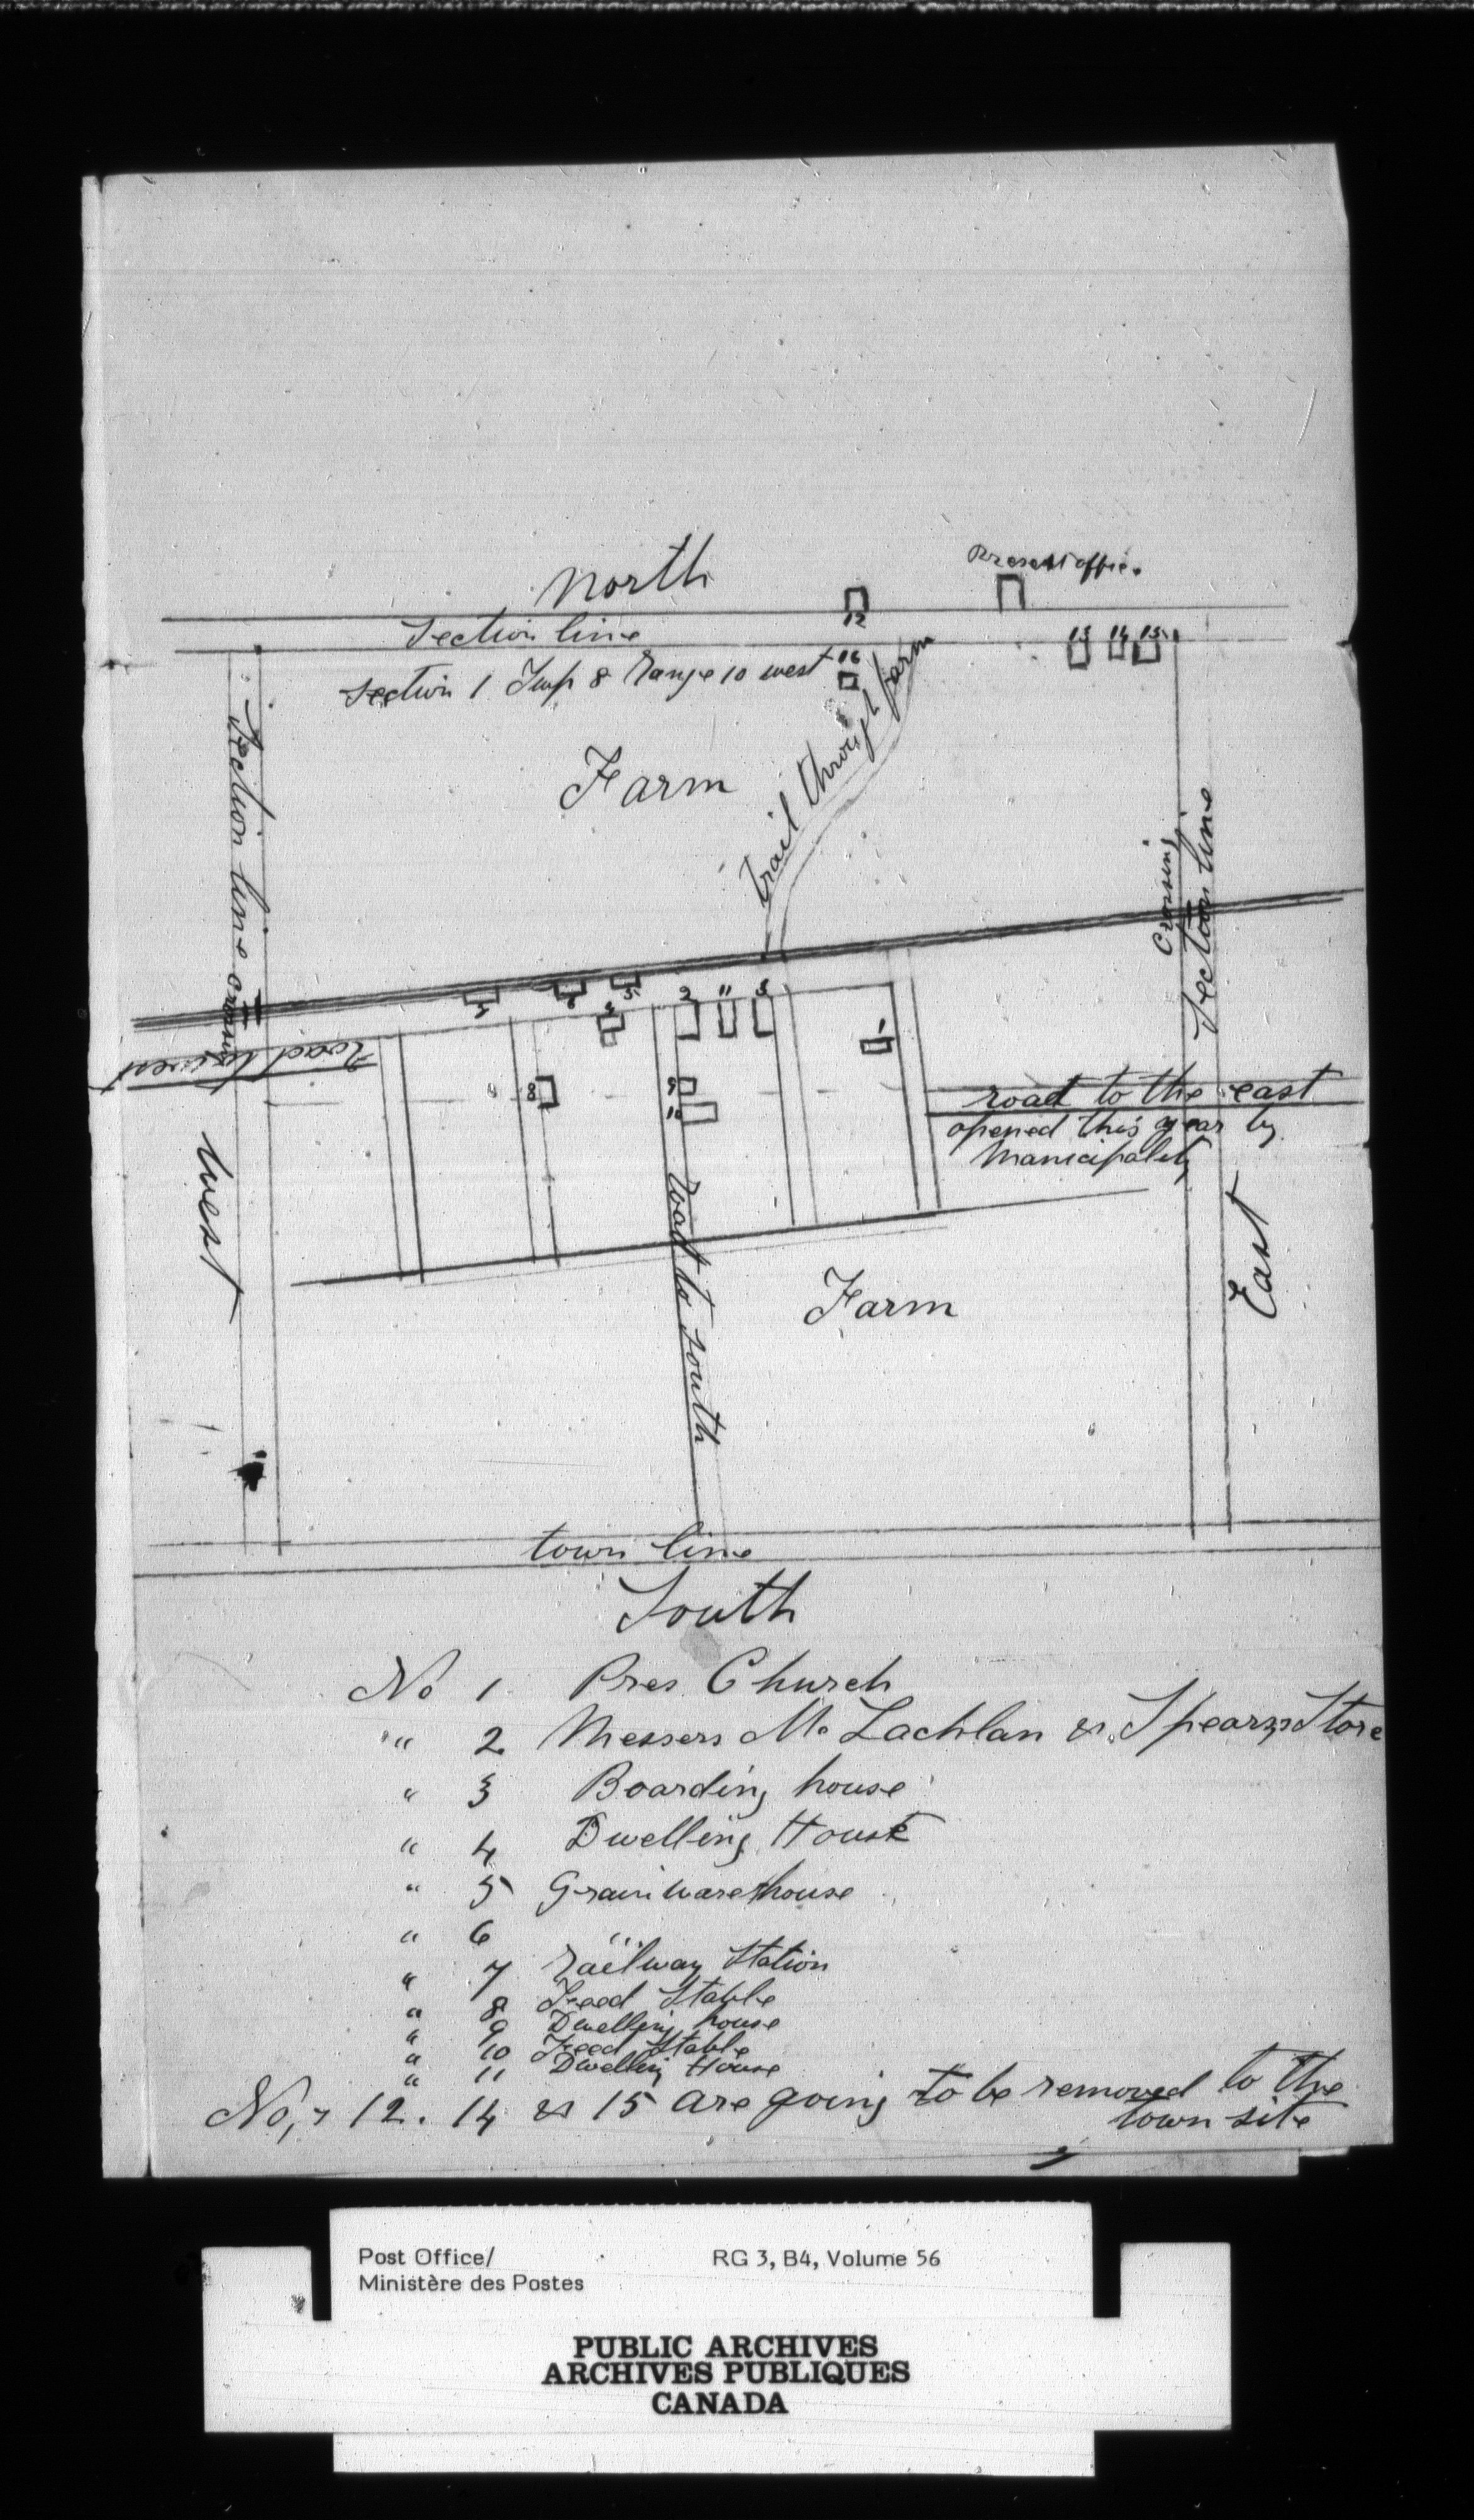 North
Present office.
12
Section line
13 14 15
Section 1 Twp 8 Range 10 west
16
Farm
trail through farm
Section line crossing
crossing
Section line
7 6 5 4 2 11 3 1
Road to west
8 9 10
road to the east
opened this year by
Municipality
West
road to south
East
Farm
town line
South
No 1 Pres. Church
" 2 Messers Mc Lachlan & Spears Store
" 3 Boarding house
" 4 Dwelling House
" 5 Grain warehouse
" 6 "
" 7 Railway Station
" 8 Feed Stable
" 9 Dwelling house
" 10 Feed Stable
" 11 Dwelling House
No, 12. 14 & 15 are going to be removed to the
town site
Post Office/
Ministère des Postes
RG 3, B4, Volume 56
PUBLIC ARCHIVES
ARCHIVES PUBLIQUES
CANADA